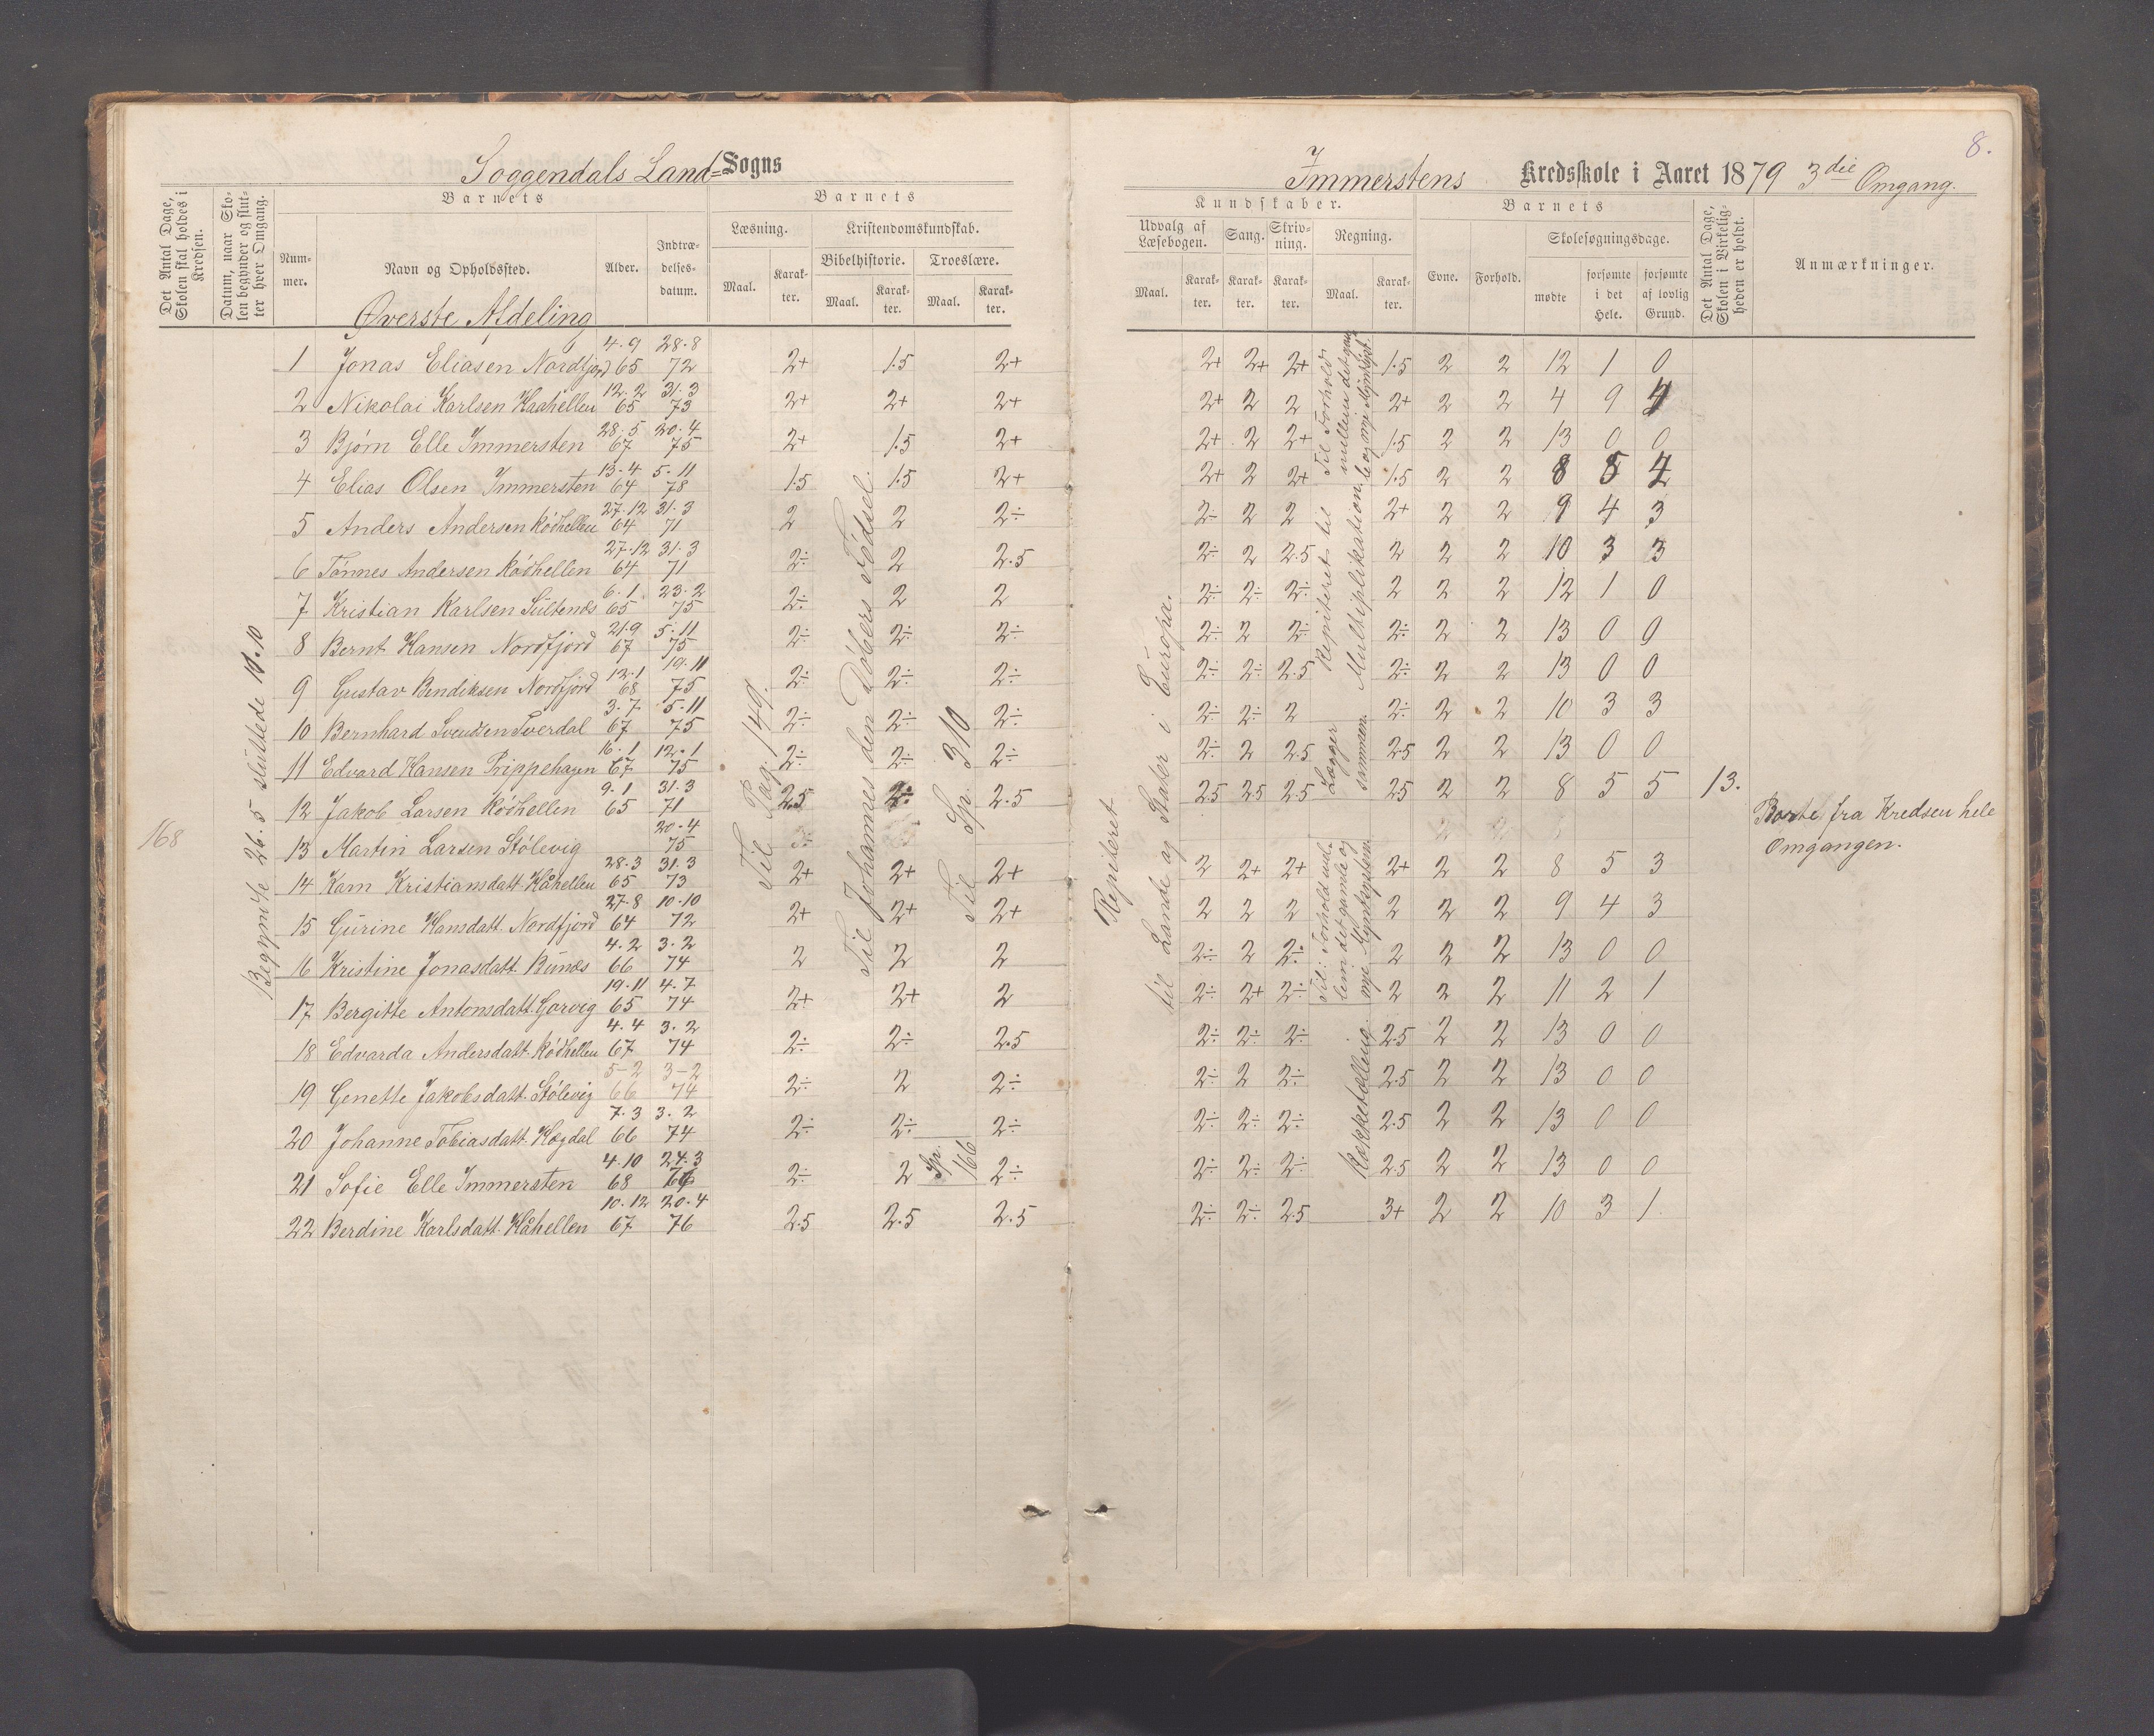 8.
Soggendals Land= Sogns
Immerstens Kredsskole i Aaret 1879 3die Omgang.
Det Antal Dage, Skolen skal holdes i Kredsen.
Datum, naar Skolen begynder og slutter hver Omgang.
Barnets
Nummer.
Navn og Opholdssted.
Alder.
Indtrædelsesdatum.
Barnets
Læsning.
Maal.
Karakter.
Kristendomskundskab.
Bibelhistorie.
Troeslære.
Maal.
Karakter.
Maal.
Karakter.
Kundskaber.
Udvalg af Læsebogen.
Sang.
Skrivning.
Regning.
Maal.
Karakter.
Karakter.
Karakter.
Maal.
Karakter.
Barnets
Evne.
Forhold.
Skolesøgningsdage.
mødte
forsømte i det Hele.
forsømte af lovlig Grund.
Det Antal Dage, Skolen i Virkeligheden er holdt.
Anmærkninger.
Øverste Afdeling
168
Begyndte 26.5 sluttede 10.10
Til Pag. 149.
Til Johannes den Døbers Fødsel.
Til Sp. 310
Sp. 166
Repiteret
til Lande og Stater i Europa.
Repiteret til Multiplikation.
Lægger sammen.
Rækketælling.
1 Jonas Eliasen Nordfjord 4.9 65 28.8 72 2+ 1.5 2+ 2+ 2+ 2+ 1.5 2 2 12 1 0
2 Nikolai Karlsen Haahellen 12.2 65 31.3 73 2+ 2+ 2+ 2+ 2 2 2+ 2 2 4 9 4
3 Bjørn Elle Immersten 28.5 67 20.4 75 2+ 1.5 2+ 2+ 2 2+ 1.5 2 2 13 0 0
4 Elias Olsen Immersten 13.4 64 5.11 78 1.5 1.5 2+ 2+ 2 2+ 1.5 2 2 8 5 4
5 Anders Andersen Rødhellen 27.12 64 31.3 71 2 2 2÷ 2- 2 2 2+ 2 2 9 4 3
6 Tønnes Andersen Rødhellen 27.12 64 31.3 71 2÷ 2 2.5 2÷ 2 2.5 2 2 2 10 3 3
7 Kristian Karlsen Sültenæs 6.1 65 23.2 75 2÷ 2 2 2÷ 2÷ 2÷ 2 2 2 12 1 0
8 Bernt Hansen Nordfjord 21.9 67 5.11 75 2÷ 2÷ 2÷ 2÷ 2 2÷ 2÷ 2 2 13 0 0
9 Gustav Bendiksen Nordfjord 12.1 68 19.11 75 2÷ 2÷ 2÷ 2÷ 2÷ 2.5 2÷ 2 2 13 0 0
10 Bernhard Svendsen Tverdal 3.7 67 5.11 75 2÷ 2÷ 2÷ 2÷ 2÷ 2 2÷ 2 2 10 3 3
11 Edvard Hansen Prippehagen 16.1 67 12.1 75 2÷ 2÷ 2÷ 2÷ 2 2.5 2.5 2 2 13 0 0
12 Jakob Larsen Rødhellen 9.1 65 31.3 71 2.5 2÷ 2.5 2.5 2.5 2.5 2.5 2 2 8 5 5 13.
13 Martin Larsen Stölevig 20.4 75 Borte fra Kredsen hele Omgangen.
14 Karn Kristiansdatt. Håhellen 28.3 65 31.3 73 2+ 2+ 2+ 2 2+ 2+ 2+ 2 2 8 5 3
15 Gürine Hansdatt. Nordfjord 27.8 64 10.10 72 2+ 2+ 2+ 2 2 2 2 2 2 9 4 3
16 Kristine Jonasdatt. Bünæs 4.2 66 3.2 74 2 2 2 2÷ 2 2÷ 2 2 2 13 0 0
17 Bergitte Antonsdatt. Gorvig 19.11 65 4.7 74 2+ 2+ 2 2÷ 2+ 2÷ 2 2 2 11 2 1
18 Edvarda Andersdatt. Rødhellen 4.4 67 3.2 74 2÷ 2÷ 2.5 2÷ 2÷ 2÷ 2.5 2 2 13 0 0
19 Genette Jakobsdatt. Stölevig 5-2 66 3-2 74 2÷ 2 2÷ 2÷ 2 2÷ 2.5 2 2 13 0 0
20 Johanne Tobiasdatt. Hægdal 7.3 66 3.2 74 2÷ 2÷ 2÷ 2÷ 2÷ 2÷ 2.5 2 2 13 0 0
21 Sofie Elle Immersten 4.10 68 24.3 2÷ 2 2÷ 2÷ 2÷ 2÷ 2.5 2 2 13 0 0
22 Berdine Karlsdatt. Håhellen 10.12 67 20.4 76 2.5 2.5 2.5 2÷ 2÷ 2.5 3+ 2 2 10 3 1